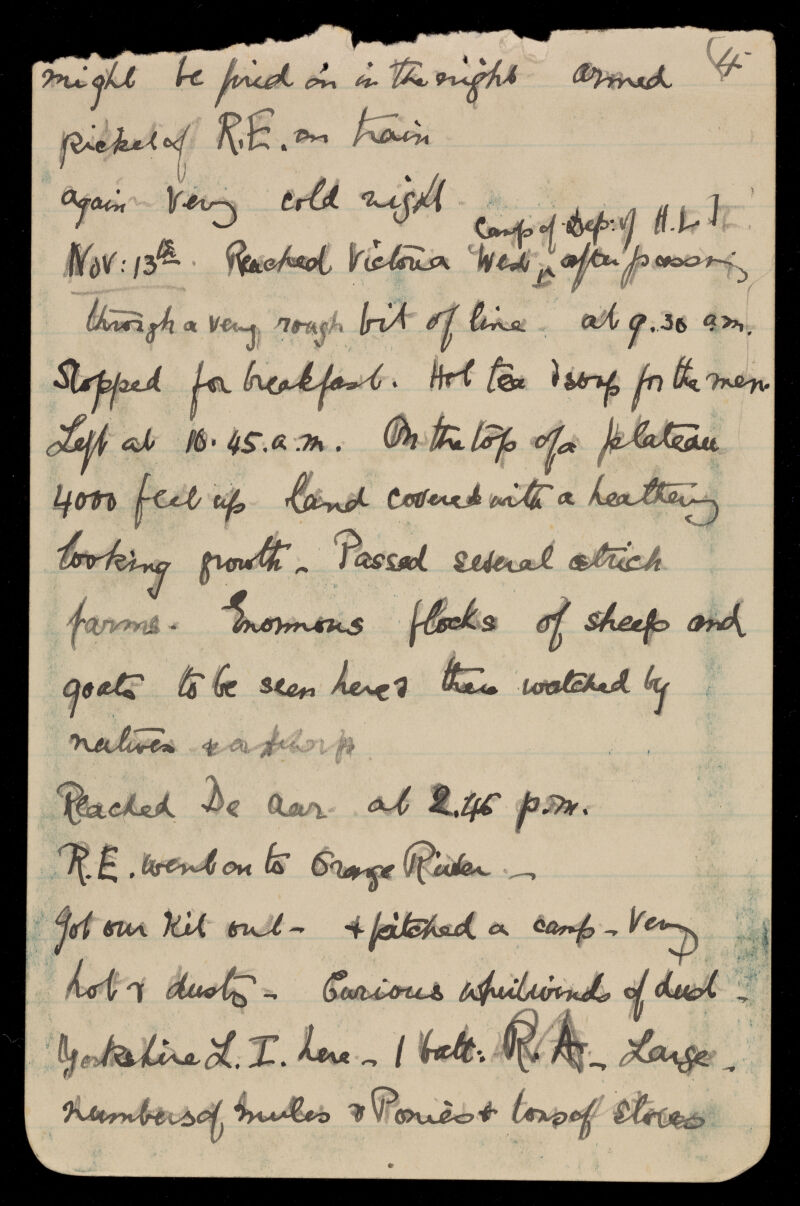 4
might be fired on in the night armed
picket of R.E. on train
again very cold night
camp of Dep: of H.L.I.
Nov: 13th. Reached Victoria West ^ after passing
through a very rough bit of line at 9.30 a.m.
Stopped for breakfast. Hot tea & soup for the men.
Left at 10.45. a.m. On the top of a plateau
4000 feet up land covered with a heathery
looking growth - Passed several ostrich
farms. Enormous flocks of sheep and
goats to be seen here & there watched by
natives
Reached De Aar at 2.45 p.m.
R.E. went on to Orange River -
Got our Kit out - + pitched a camp - Very
hot & dusty - Curious whirlwinds of dust -
Yorkshire L.I. here - 1 batt: R.A. - Large
numbers of mules & Ponies + tons of stores